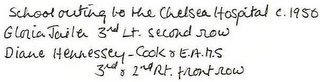 School outing to the Chelsea Hospital c. 1950
Gloria Jailer 3rd Lt. second row
Diane Hennessey-Cook & E.A.M.S
3rd & 2nd Rt. front row